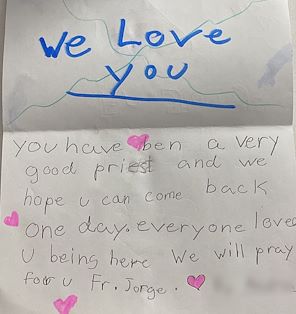 We Love
you
you have ben a very
good priest and we
hope u can come back
one day. everyone loves
u being here We will pray
for u Fr. Jorge.